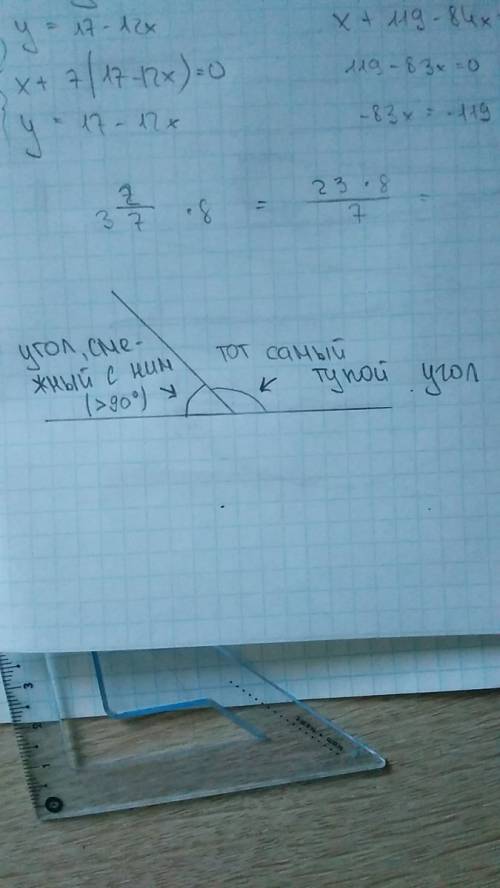 y = 17 - 12x
x + 119 - 84x
x + 7(17-12x)=0
119 - 83x = 0
y = 17 - 12x
-83x = -119
3 2/7 · 8 = 23 · 8 / 7 =
угол, сме-
жный с ним
(>90°)
тот самый
тупой угол
3
2
1
0